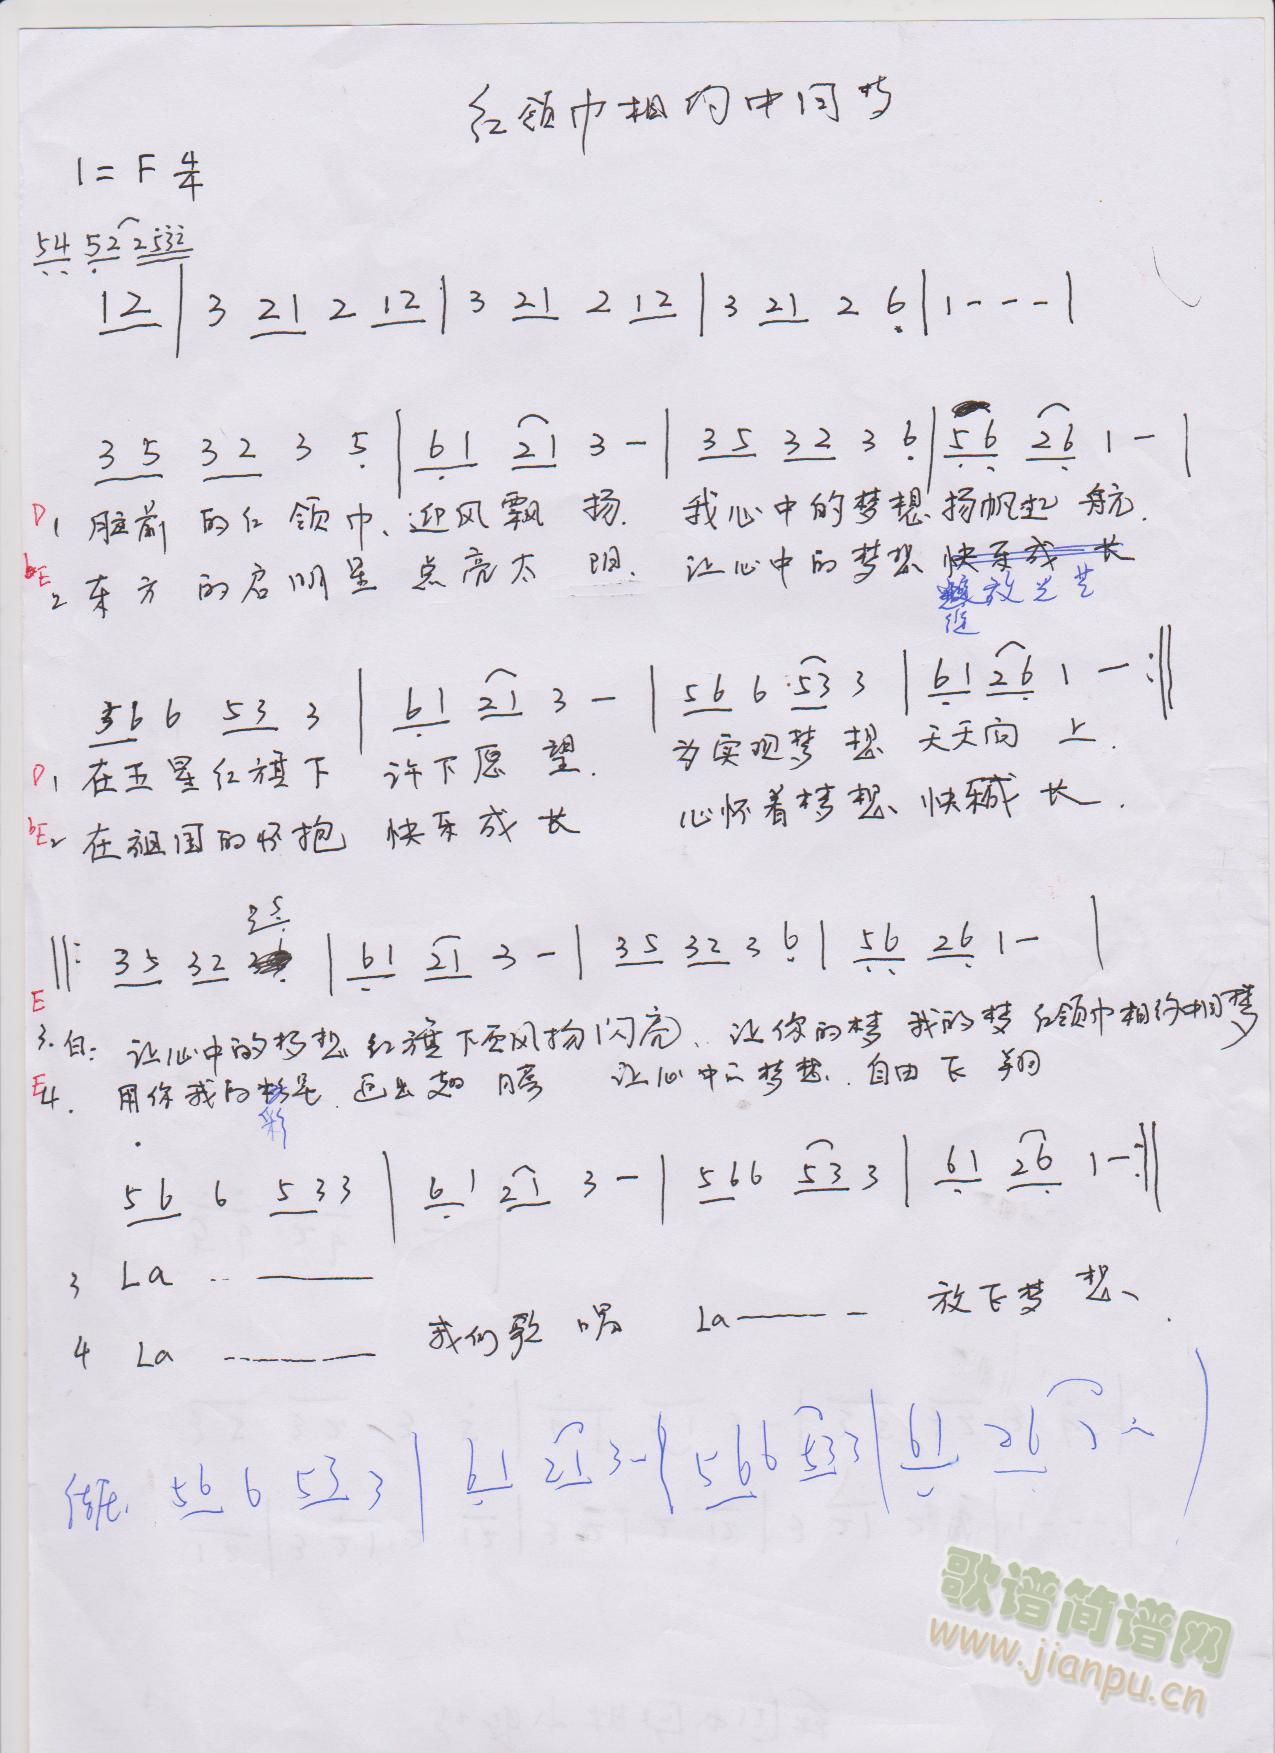 红领巾相约中国梦
1 = F 4/4
54 52 2532
12 | 3 21 2 12 | 3 21 2 12 | 3 21 2 6 | 1 - - - |
35 32 3 5 | 61 21 3 - | 35 32 3 6 | 56 26 1 - |
D 1 胸前的红领巾、迎风飘扬. 我心中的梦想扬帆起航.
bE 2 东方的启明星点亮太阳. 让心中的梦想快乐成长
绽放光芒
566 53 3 | 61 21 3 - | 566 53 3 | 61 26 1 - :||
D 1 在五星红旗下 许下愿望. 为实现梦想 天天向上.
bE 2 在祖国的怀抱 快乐成长 心怀着梦想 快乐成长.
35
||: 35 32 | 61 21 3 - | 35 32 3 6 | 56 26 1 - |
E 3. 合: 让心中的梦想 红旗下迎风扬闪亮、让你的梦 我的梦 红领巾相约中国梦
E 4. 用你我的 翅膀 让心中的梦想. 自由飞翔
彩
56 6 533 | 61 21 3 - | 566 53 3 | 61 26 1 - :||
3 La
4 La 我们歌唱 La 放飞梦想、
结尾. 56 6 53 3 | 61 21 3 - | 566 53 3 | 61 26
歌谱简谱网
www.jianpu.cn